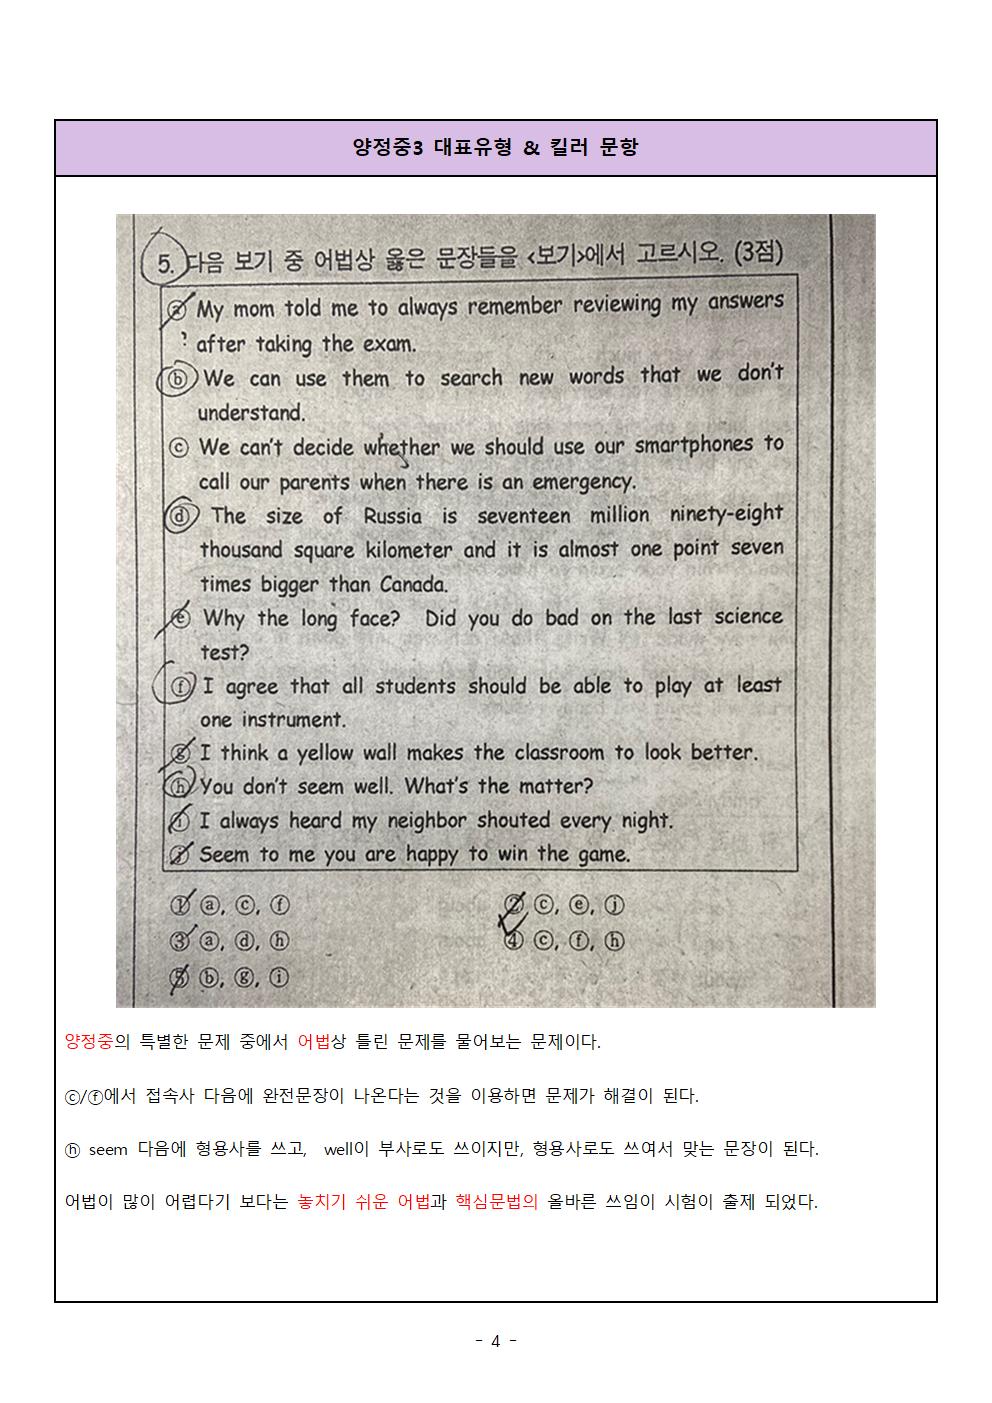 양정중3 대표유형 & 킬러 문항
5. 다음 보기 중 어법상 옳은 문장들을 <보기>에서 고르시오. (3점)
ⓐ My mom told me to always remember reviewing my answers
after taking the exam.
ⓑ We can use them to search new words that we don't
understand.
ⓒ We can't decide whether we should use our smartphones to
call our parents when there is an emergency.
ⓓ The size of Russia is seventeen million ninety-eight
thousand square kilometer and it is almost one point seven
times bigger than Canada.
ⓔ Why the long face? Did you do bad on the last science
test?
ⓕ I agree that all students should be able to play at least
one instrument.
ⓖ I think a yellow wall makes the classroom to look better.
ⓗ You don't seem well. What's the matter?
ⓘ I always heard my neighbor shouted every night.
ⓙ Seem to me you are happy to win the game.
① ⓐ, ⓒ, ⓕ ② ⓒ, ⓔ, ⓙ
③ ⓐ, ⓓ, ⓗ ④ ⓒ, ⓕ, ⓗ
⑤ ⓑ, ⓖ, ⓘ
양정중의 특별한 문제 중에서 어법상 틀린 문제를 물어보는 문제이다.
ⓒ/ⓕ에서 접속사 다음에 완전문장이 나온다는 것을 이용하면 문제가 해결이 된다.
ⓗ seem 다음에 형용사를 쓰고, well이 부사로도 쓰이지만, 형용사로도 쓰여서 맞는 문장이 된다.
어법이 많이 어렵다기 보다는 놓치기 쉬운 어법과 핵심문법의 올바른 쓰임이 시험이 출제 되었다.
- 4 -